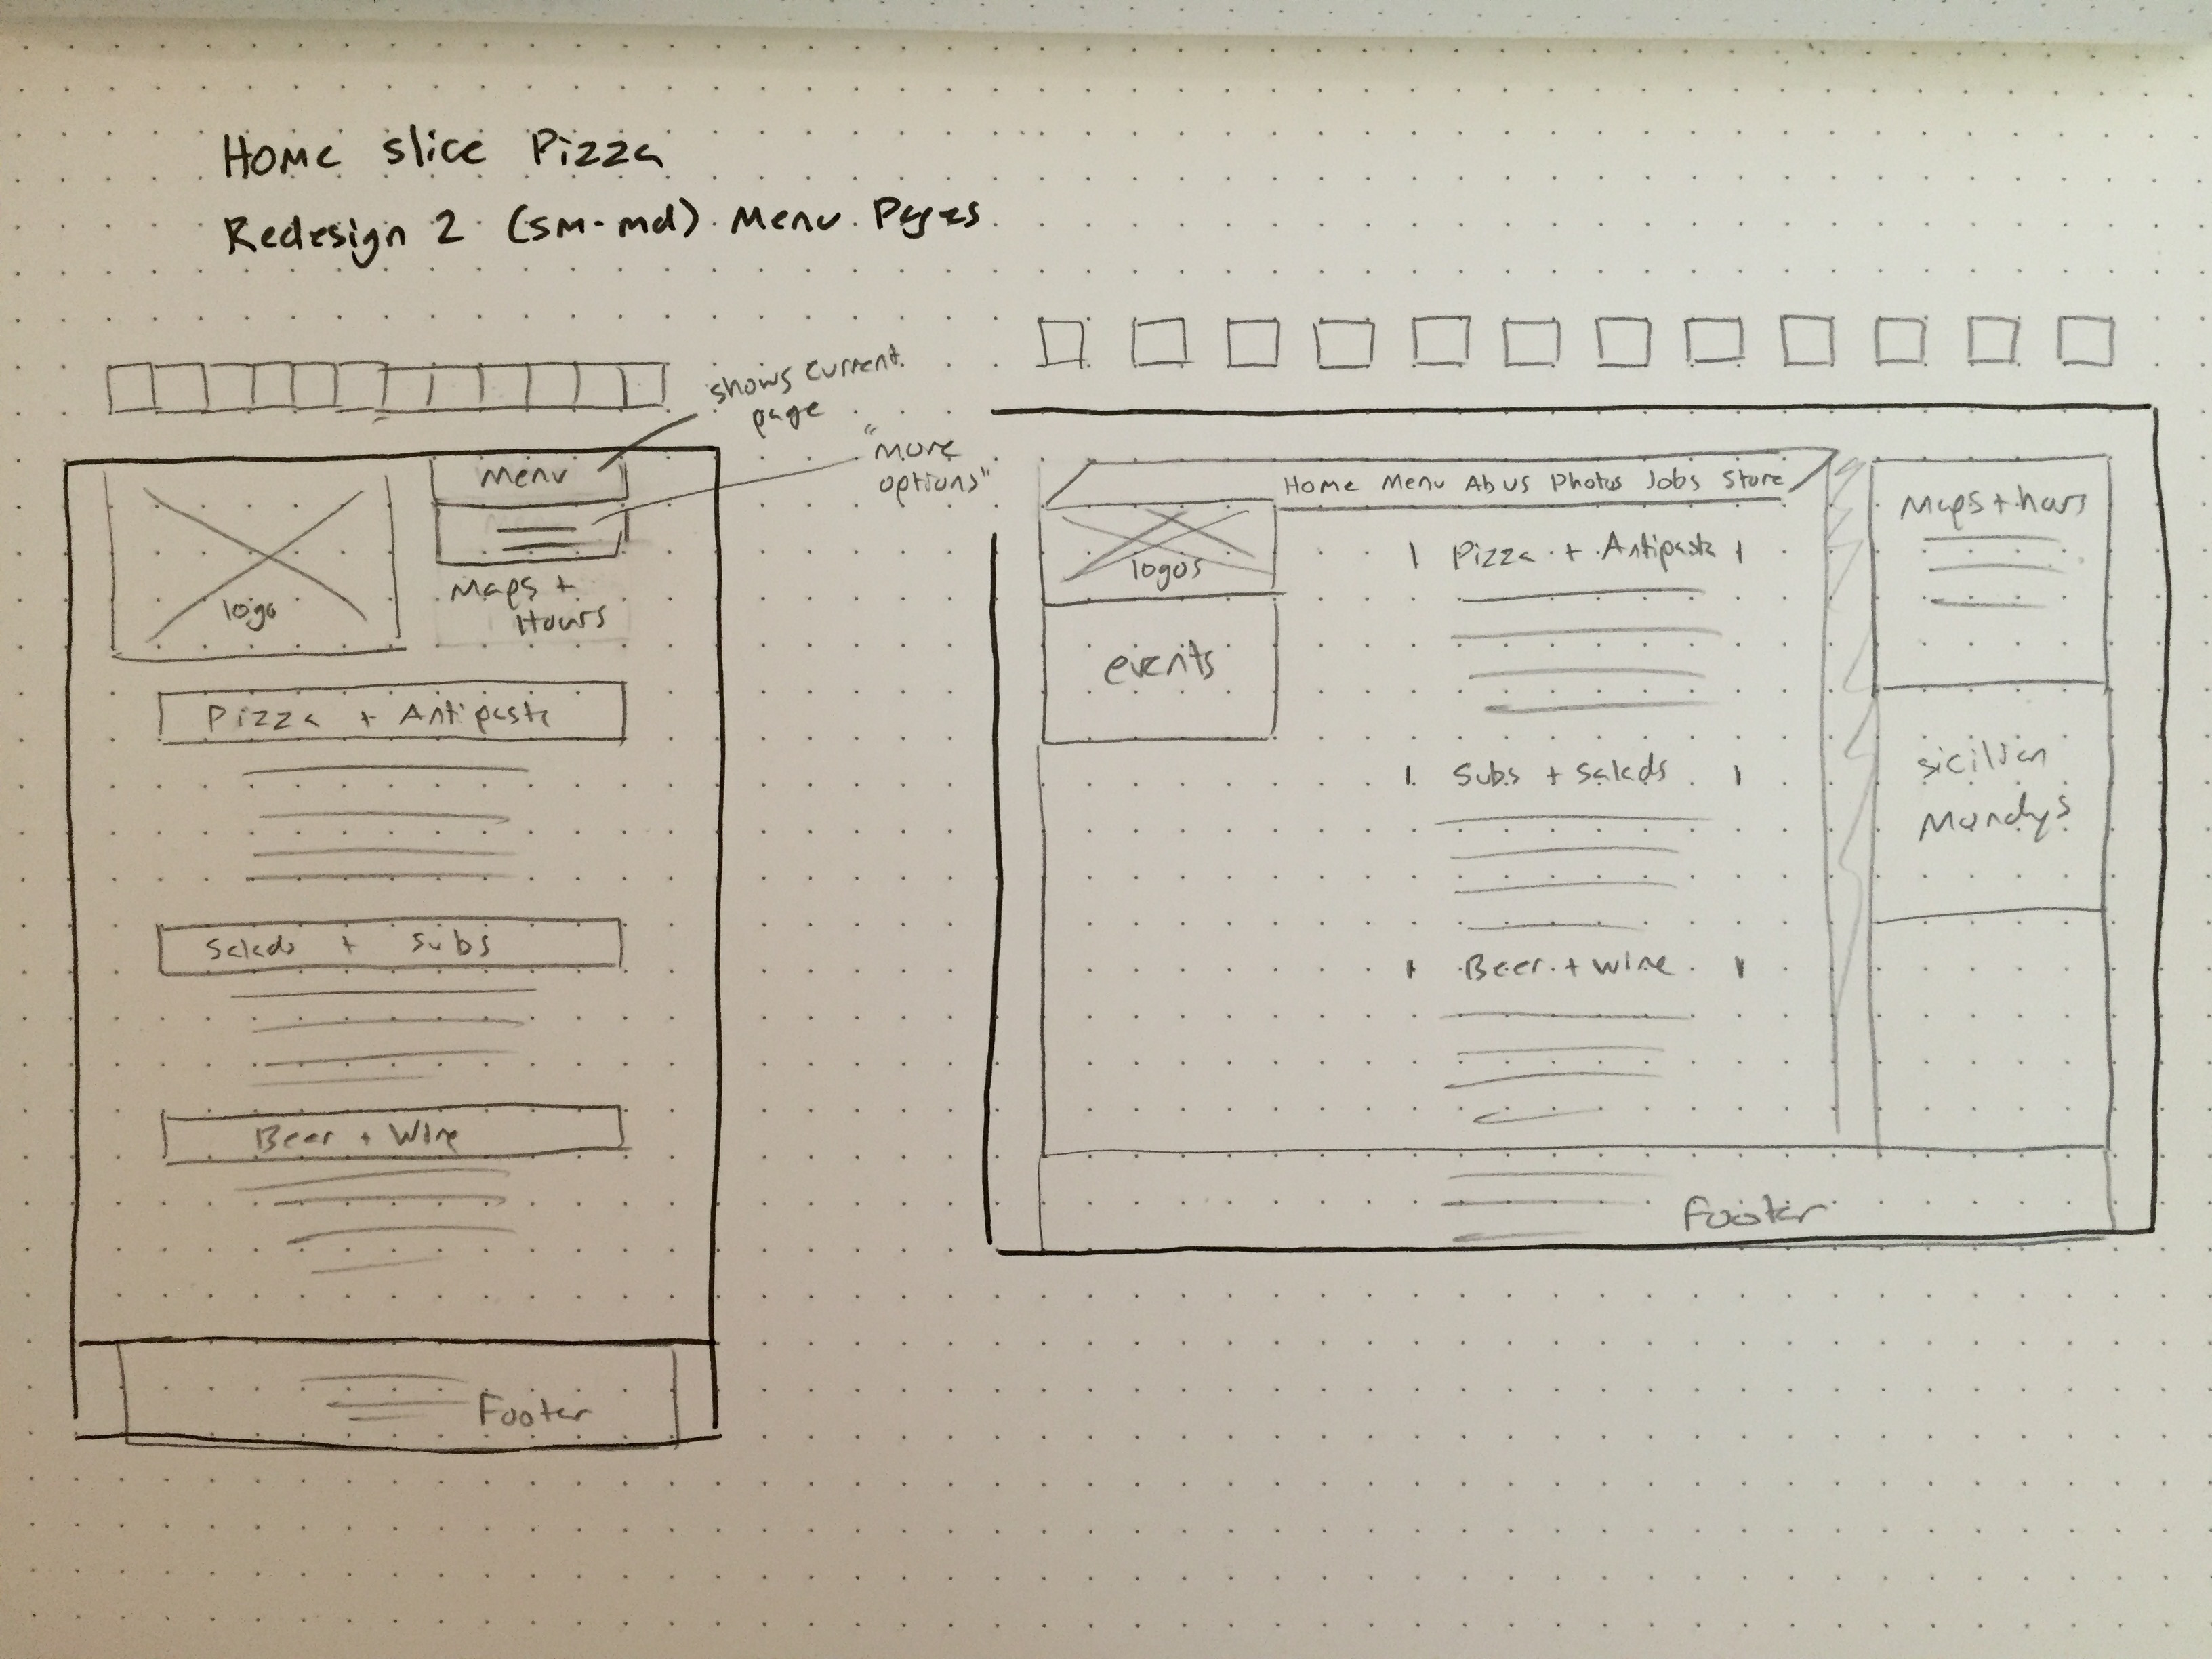 Home slice Pizza
Redesign 2 (sm-md) Menu Pages
shows current
page
"more
options"
Menu
Maps +
Hours
logo
Pizza + Antipasta
Salads + Subs
Beer + Wine
Footer
Home Menu Ab us Photos Jobs Store
logos
events
Pizza + Antipasta
Subs + Salads
Beer + Wine
Maps + hours
sicilian
Mondys
Footer